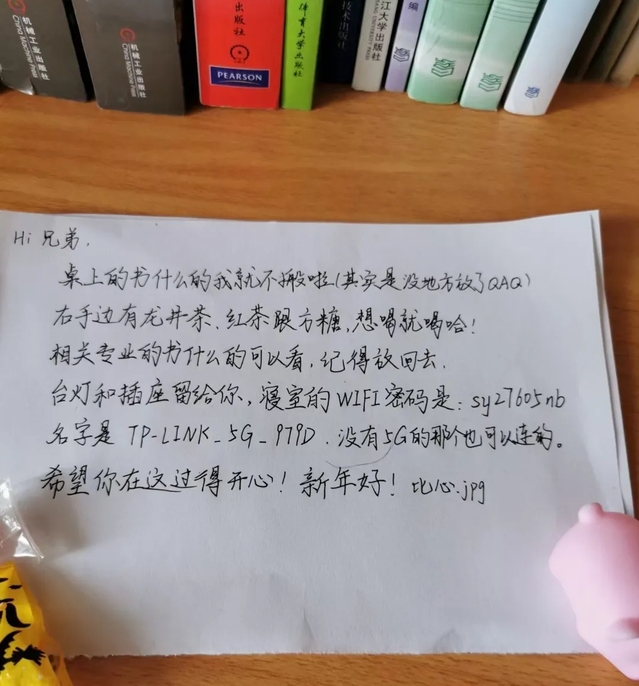 机械工业出版社
China Machine Press
机械工业出版社
China Machine Press
出版社
PEARSON
体育大学出版社
技术出版社
江大学出版社
编
Hi 兄弟,
桌上的书什么的我就不搬啦(其实是没地方放了QAQ)
右手边有龙井茶、红茶跟方糖,想喝就喝哈!
相关专业的书什么的可以看,记得放回去.
台灯和插座留给你,寝室的WIFI密码是:sy27605nb
名字是 TP-LINK_5G_979D.没有5G的那个也可以连的。
希望你在这过得开心!新年好!比心.jpg